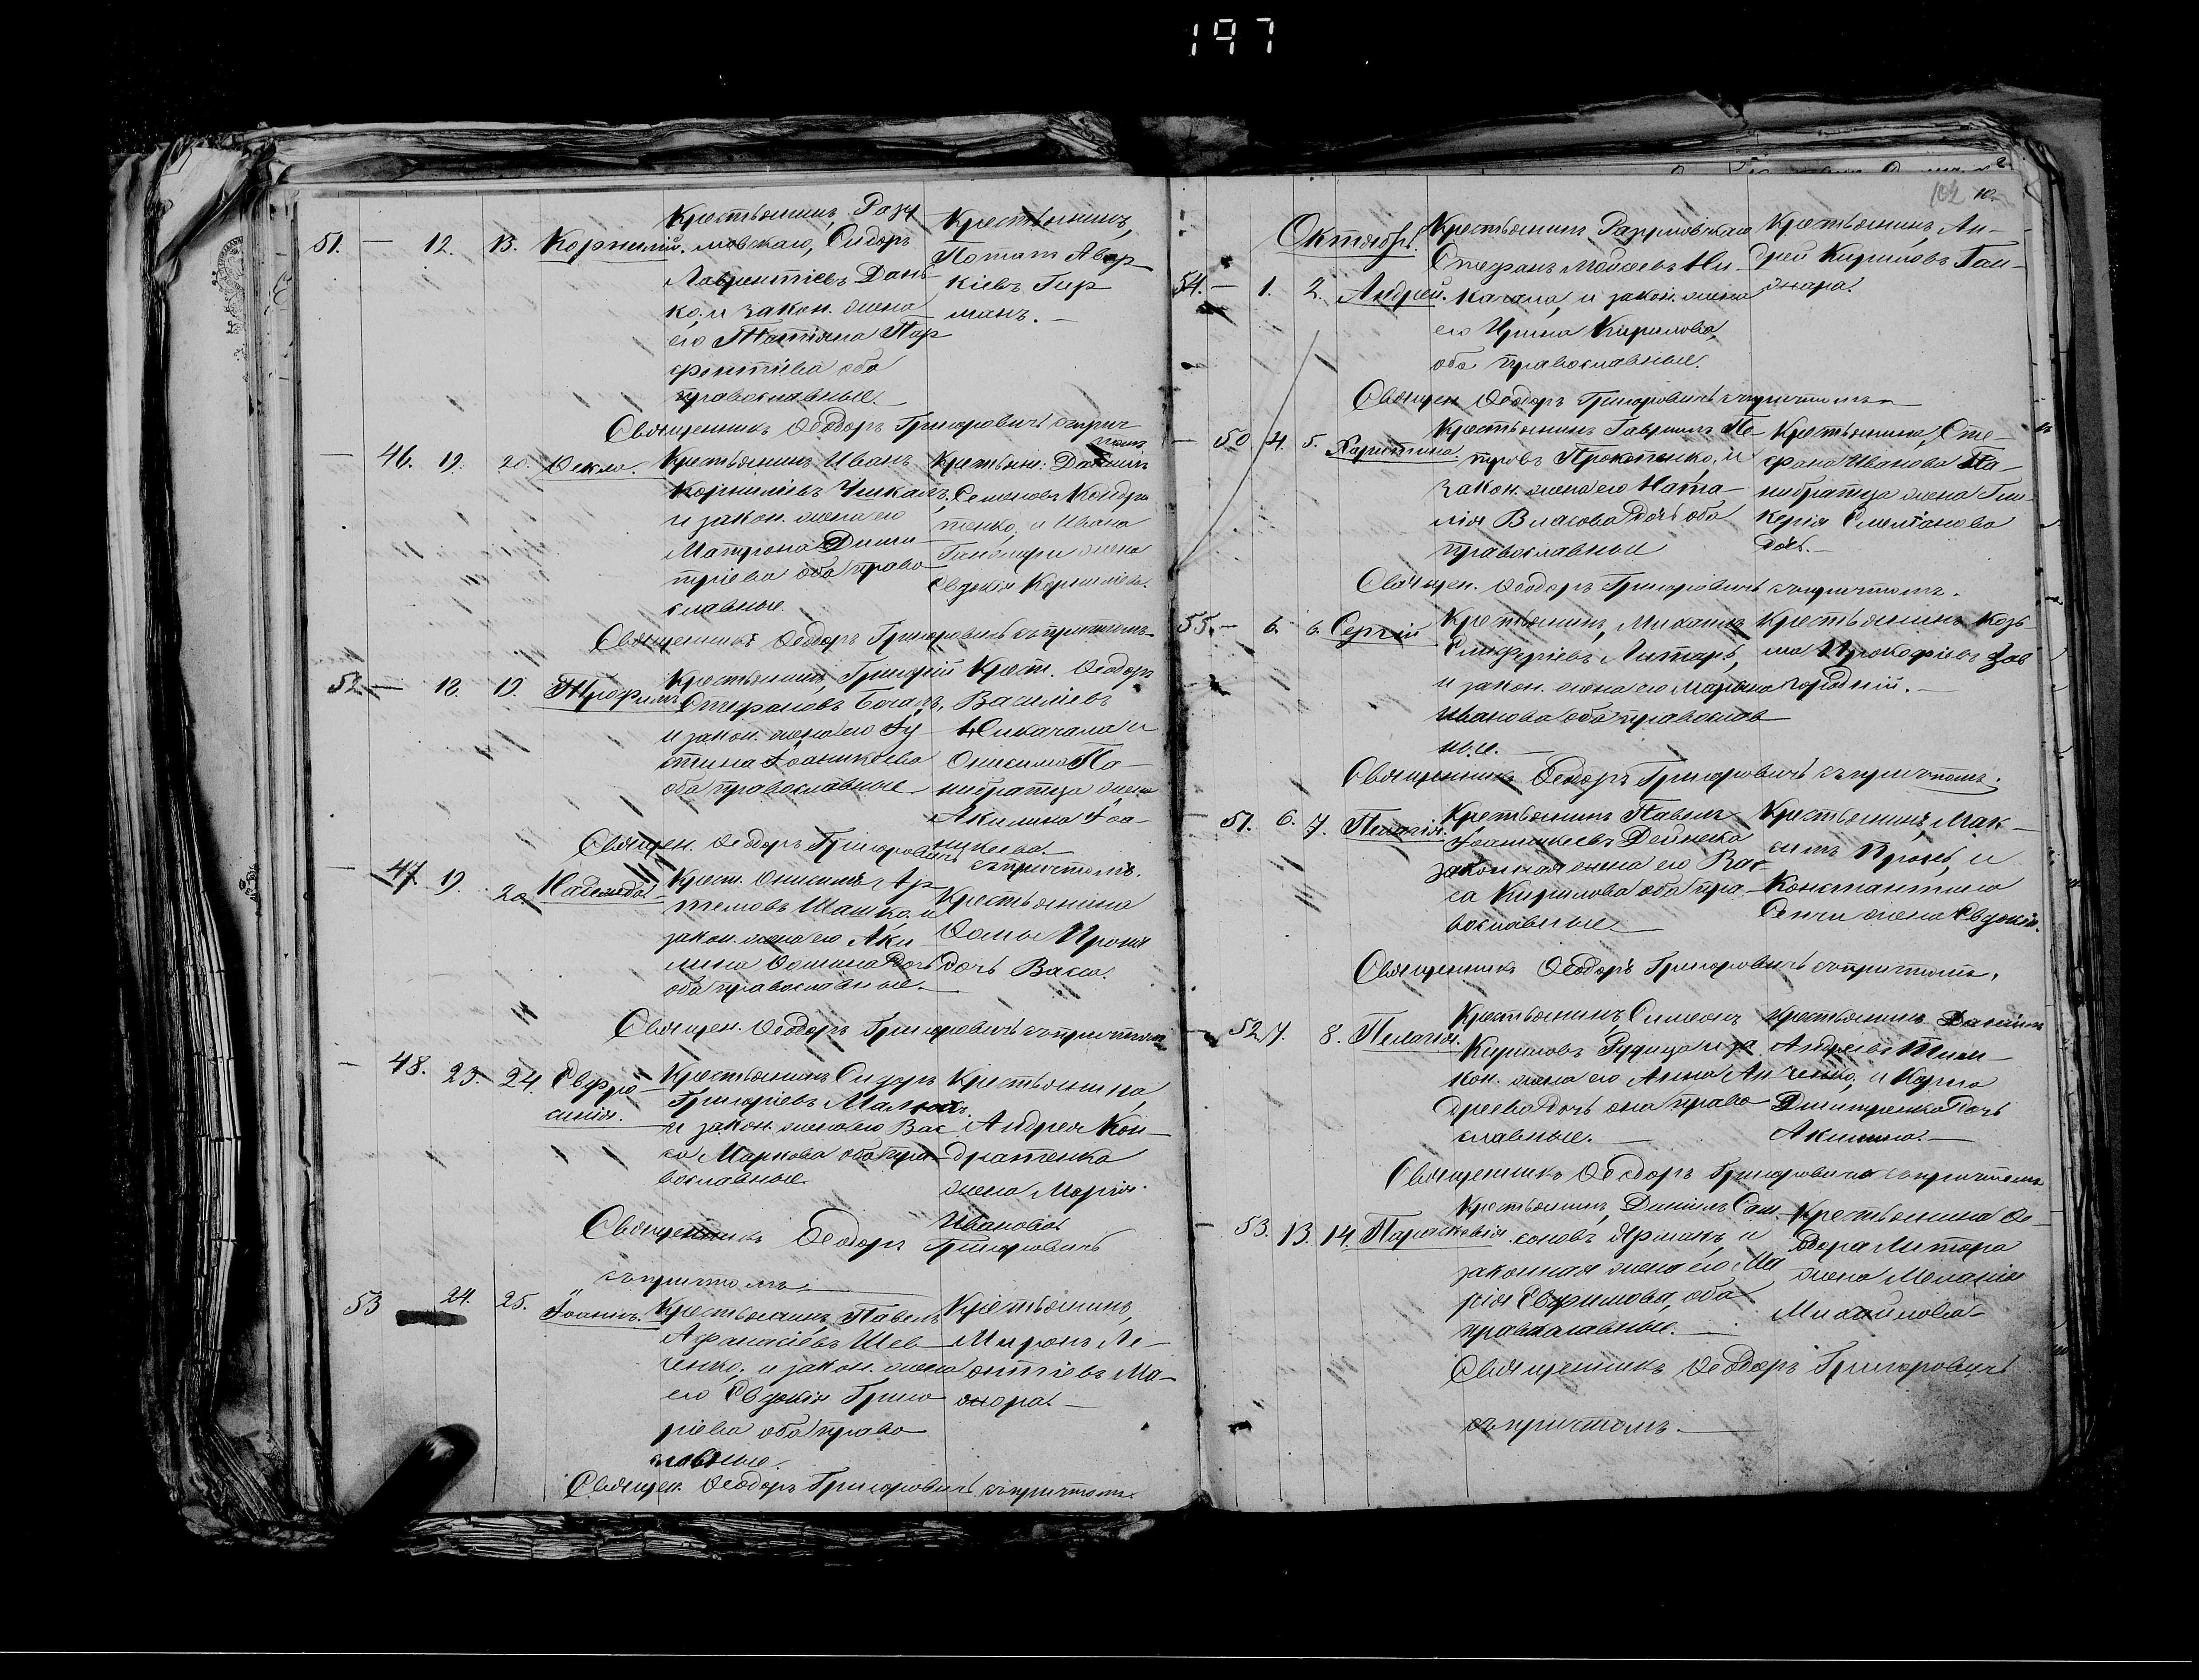 197
51. — 12. 13. Корнилій.
Крестьянинъ, Разу
мовскаго, Сидоръ
Лаврентіевъ Дань
ко, и закон. жена
его Татіана Пар
фентіева оба
православные.
Крестьянинъ,
Потапъ Авер
кіевъ Гир
манъ.
Священникъ Ѳеодоръ Григоровичъ съ прич
томъ
— 46. 19. 20. Ѳекла.
Крестьянинъ Иванъ
Корниліевъ Чикалъ,
и закон. жена его
Матрона Дими
тріева оба право
славные.
Крестьян: Даніилъ
Семеновъ Кондра
тенко, и Ивана
жена
Евдокія Корниліева.
Священникъ Ѳеодоръ Григоровичъ съ причтомъ
52. — 18. 19. Трофимъ
Крестьянинъ, Григорій
Стефановъ
и закон. жена его Іу
стина Іоаникіева
оба православные
Крест. Ѳеодоръ
Василіевъ
Никачала и
Онисима Па
нибратца жена
Акилина Іоа-
никіева.
Священ. Ѳеодоръ Григоровичъ
съ причтомъ.
— 47. 19. 20. Надежда
Крест. Онисимъ Ар
темовъ Шашко, и
закон. жена его Аки
лина Ѳомина дочь
оба православные.
Крестьянина
Ѳомы Ирохи
дочь Васса.
Священ. Ѳеодоръ Григоровичъ съ причтомъ
— 48. 23. 24. Евфро
синія.
Крестьянинъ Сидоръ
Григоріевъ
и закон. жена его Вас
са Маркова оба пра
вославные.
Крестьянина,
Андрея Кон-
дратенка
жена Марія
Иванова
Священникъ Ѳеодоръ Григоровичъ
съ причтомъ
53 — 24. 25. Іоаннъ.
Крестьянинъ, Павелъ
Афанасіевъ Шев
ченко, и закон. жена
его Евдокія Григо
ріева оба право
славные.
Крестьянинъ,
Миронъ Ле-
онтіевъ Ма-
жара.
Священ. Ѳеодоръ Григоровичъ съ причтомъ.
102
Октябрь.
54. — 1. 2. Андрей.
Крестьянинъ Разумовскаго
Стефанъ Моисеевъ Ни-
качала, и закон. жена
его Ирина Кирилова,
оба православные.
Крестьянинъ, Ан-
дрей Кириловъ Ган-
жара.
Священ Ѳеодоръ Григоровичъ съ причтомъ
— 50 4. 5. Харитина.
Крестьянинъ Гавріилъ Пе-
тровъ Прокопенко, и
закон. жена его Ната-
лія Власова дочь оба
православные
Крестьянина, Сте-
фана Иванова Па-
нибратца жена Гли-
керія
дочь.
Священ. Ѳеодоръ Григоровичъ съ причтомъ.
55. — 6. 6. Сергій
Крестьянинъ, Михаилъ
Елиферіевъ Литарь,
и закон. жена его Марѳа
Иванова оба православ
ные.
Крестьянинъ Козь
ма Прокофіевъ Зав
городній.
Священникъ Ѳеодоръ Григоровичъ съ причтомъ.
— 51. 6. 7. Пелагія.
Крестьянинъ Павелъ
Іоаникіевъ Дейнека
законная жена его Вас
са Кирилова оба пра
вославные
Крестьянинъ, Мак
симъ и
Константина
жена Евдокія.
Священникъ Ѳеодоръ Григоровичъ съ причтомъ.
— 52 7. 8. Пелагія.
Крестьянинъ, Симеонъ
Кириловъ Рудица и за
кон. жена его Анна Ан
дреева дочь оба право
славные.
Крестьянинъ Даніилъ
Андреевъ Тим-
ченко, и Карпа
Дмитренка дочь
Акилина.
Священникъ Ѳеодоръ Григоровичъ съ причтомъ
— 53. 13. 14. Параскевія
Крестьянинъ, Даніилъ Сам-
соновъ Ярмакъ и
законная жена его Ма
рія Евфимова, оба
православные.
Крестьянина Ѳе-
одора Литара
жена Меланія
Михайлова
Священникъ Ѳеодоръ Григоровичъ
съ причтомъ.